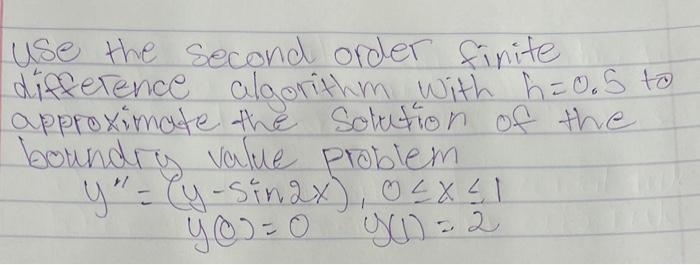 use the second order finite
difference algorithm with h=0.5 to
approximate the solution of the
boundry value problem
y" = (y-sin2x), 0≤x≤1
y(0)=0 y(1)=2